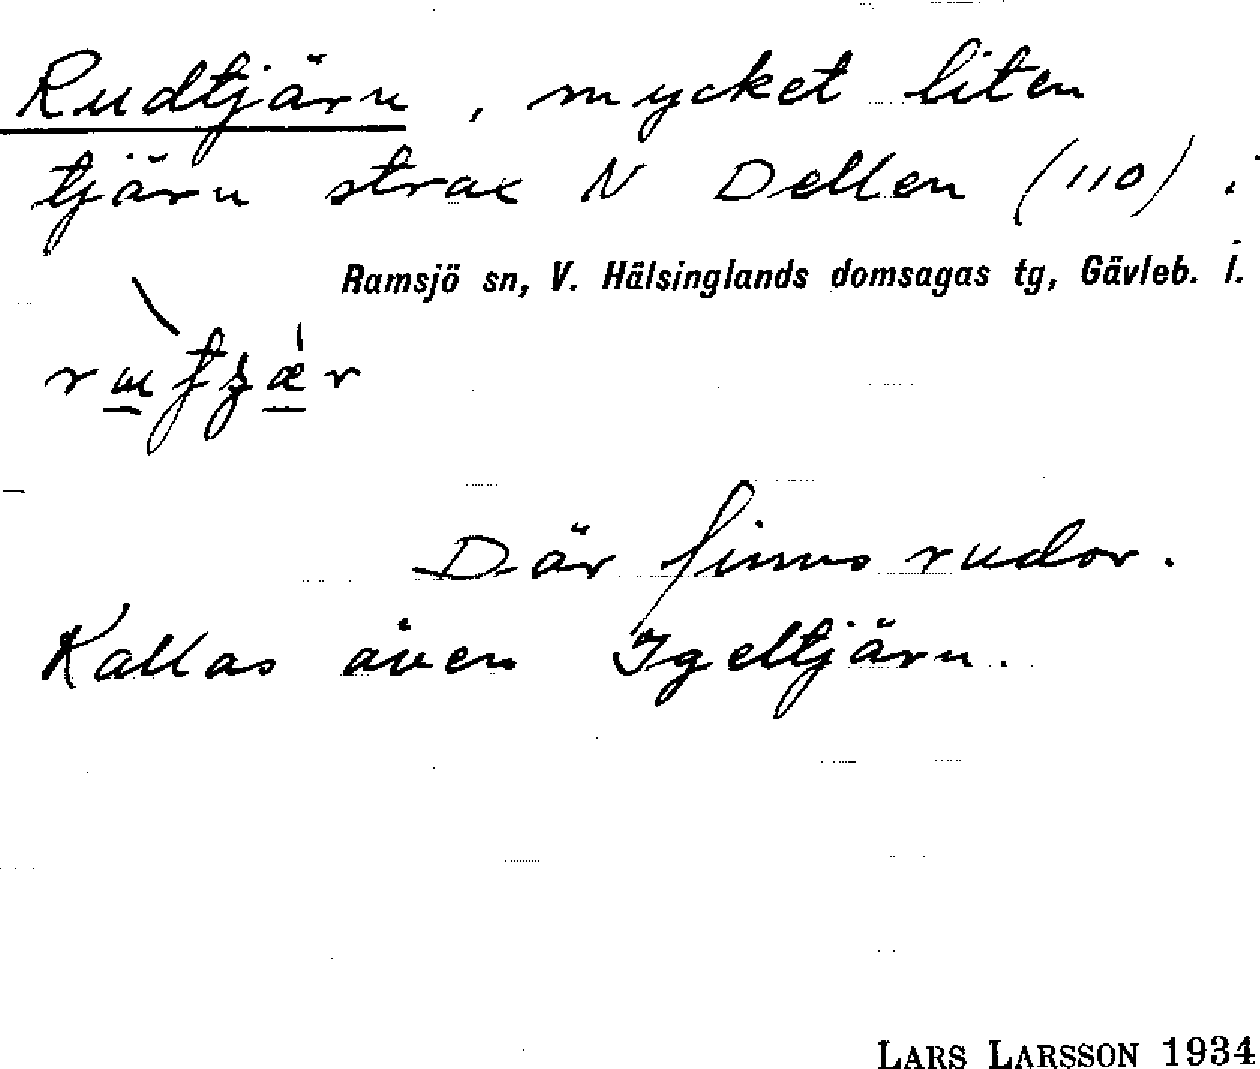 Rudtjärn, mycket liten
tjärn strax N Dellen (110) i
Ramsjö sn, V. Hälsinglands domsagas tg, Gävleb. l.
Där finns rudor.
Kallas även Igeltjärn.
LARS LARSSON 1934